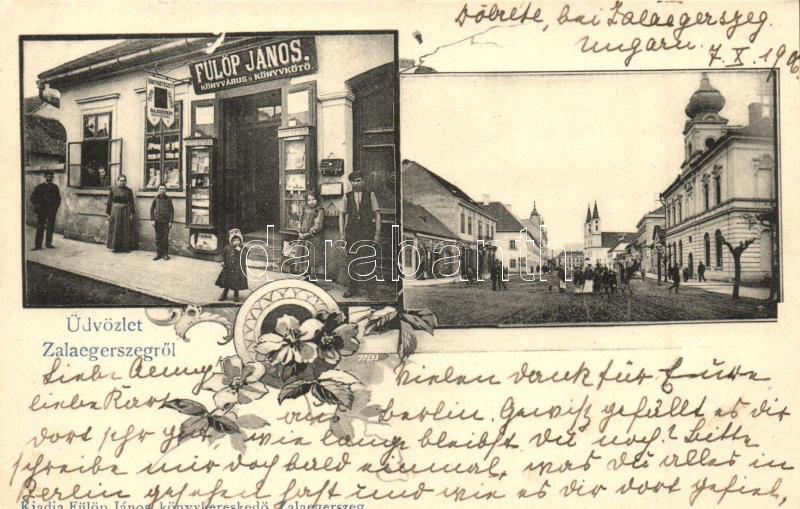 Döbréte, bei Zalaegerszeg.
Ungarn. 7. X. 190
FÜLÖP JÁNOS.
KÖNYVÁRUS ÉS KÖNYVKÖTŐ.
darabanth
Üdvözlet
Zalaegerszegről
97593
Liebe Aenny vielen Dank für Eure
liebe Karte aus Berlin. Gewiß gefällt es dir
dort sehr gut, wie lange bleibst Du noch? Bitte
schreibe mir doch bald einmal, was du alles in
Berlin gesehen hast und wie es dir dort gefiel,
Kiadja Fülöp János, könyvkereskedő Zalaegerszeg